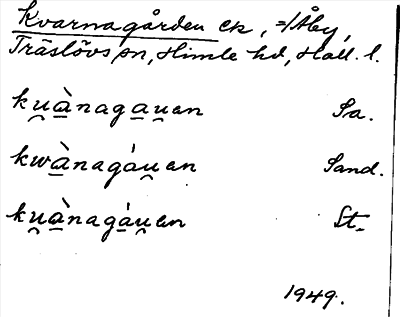 Kvarnagården ck, =/Åby,
Träslövs sn, Himle hd, Hall. l.
ku̯à̲naga̲u̯en Sa.
kwà̲nagáu̯en Sand.
ku̯à̲nagá̲u̯en St.
1949.